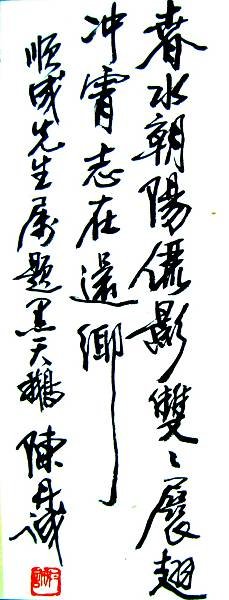 春水朝陽儷影雙〻展翅
冲霄志在還鄉
順成先生属題黑天鵝 陳丹诚